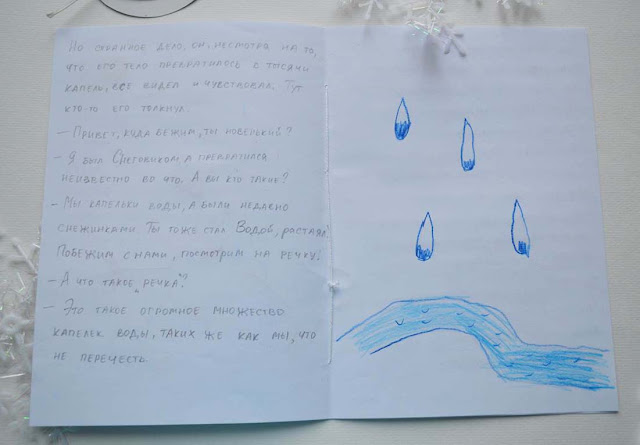 Но странное дело, он, несмотря на то,
что его тело превратилось в тысячи
капель, все видел и чувствовал. Тут
кто-то его толкнул.
– Привет, куда бежим, ты новенький?
– Я был Снеговиком, а превратился
неизвестно во что. А вы кто такие?
– Мы капельки воды, а были недавно
снежинками. Ты тоже стал Водой, растаял.
Побежим с нами, посмотрим на речку!
– А что такое „речка"?
– Это такое огромное множество
капелек воды, таких же как мы, что
не перечесть.